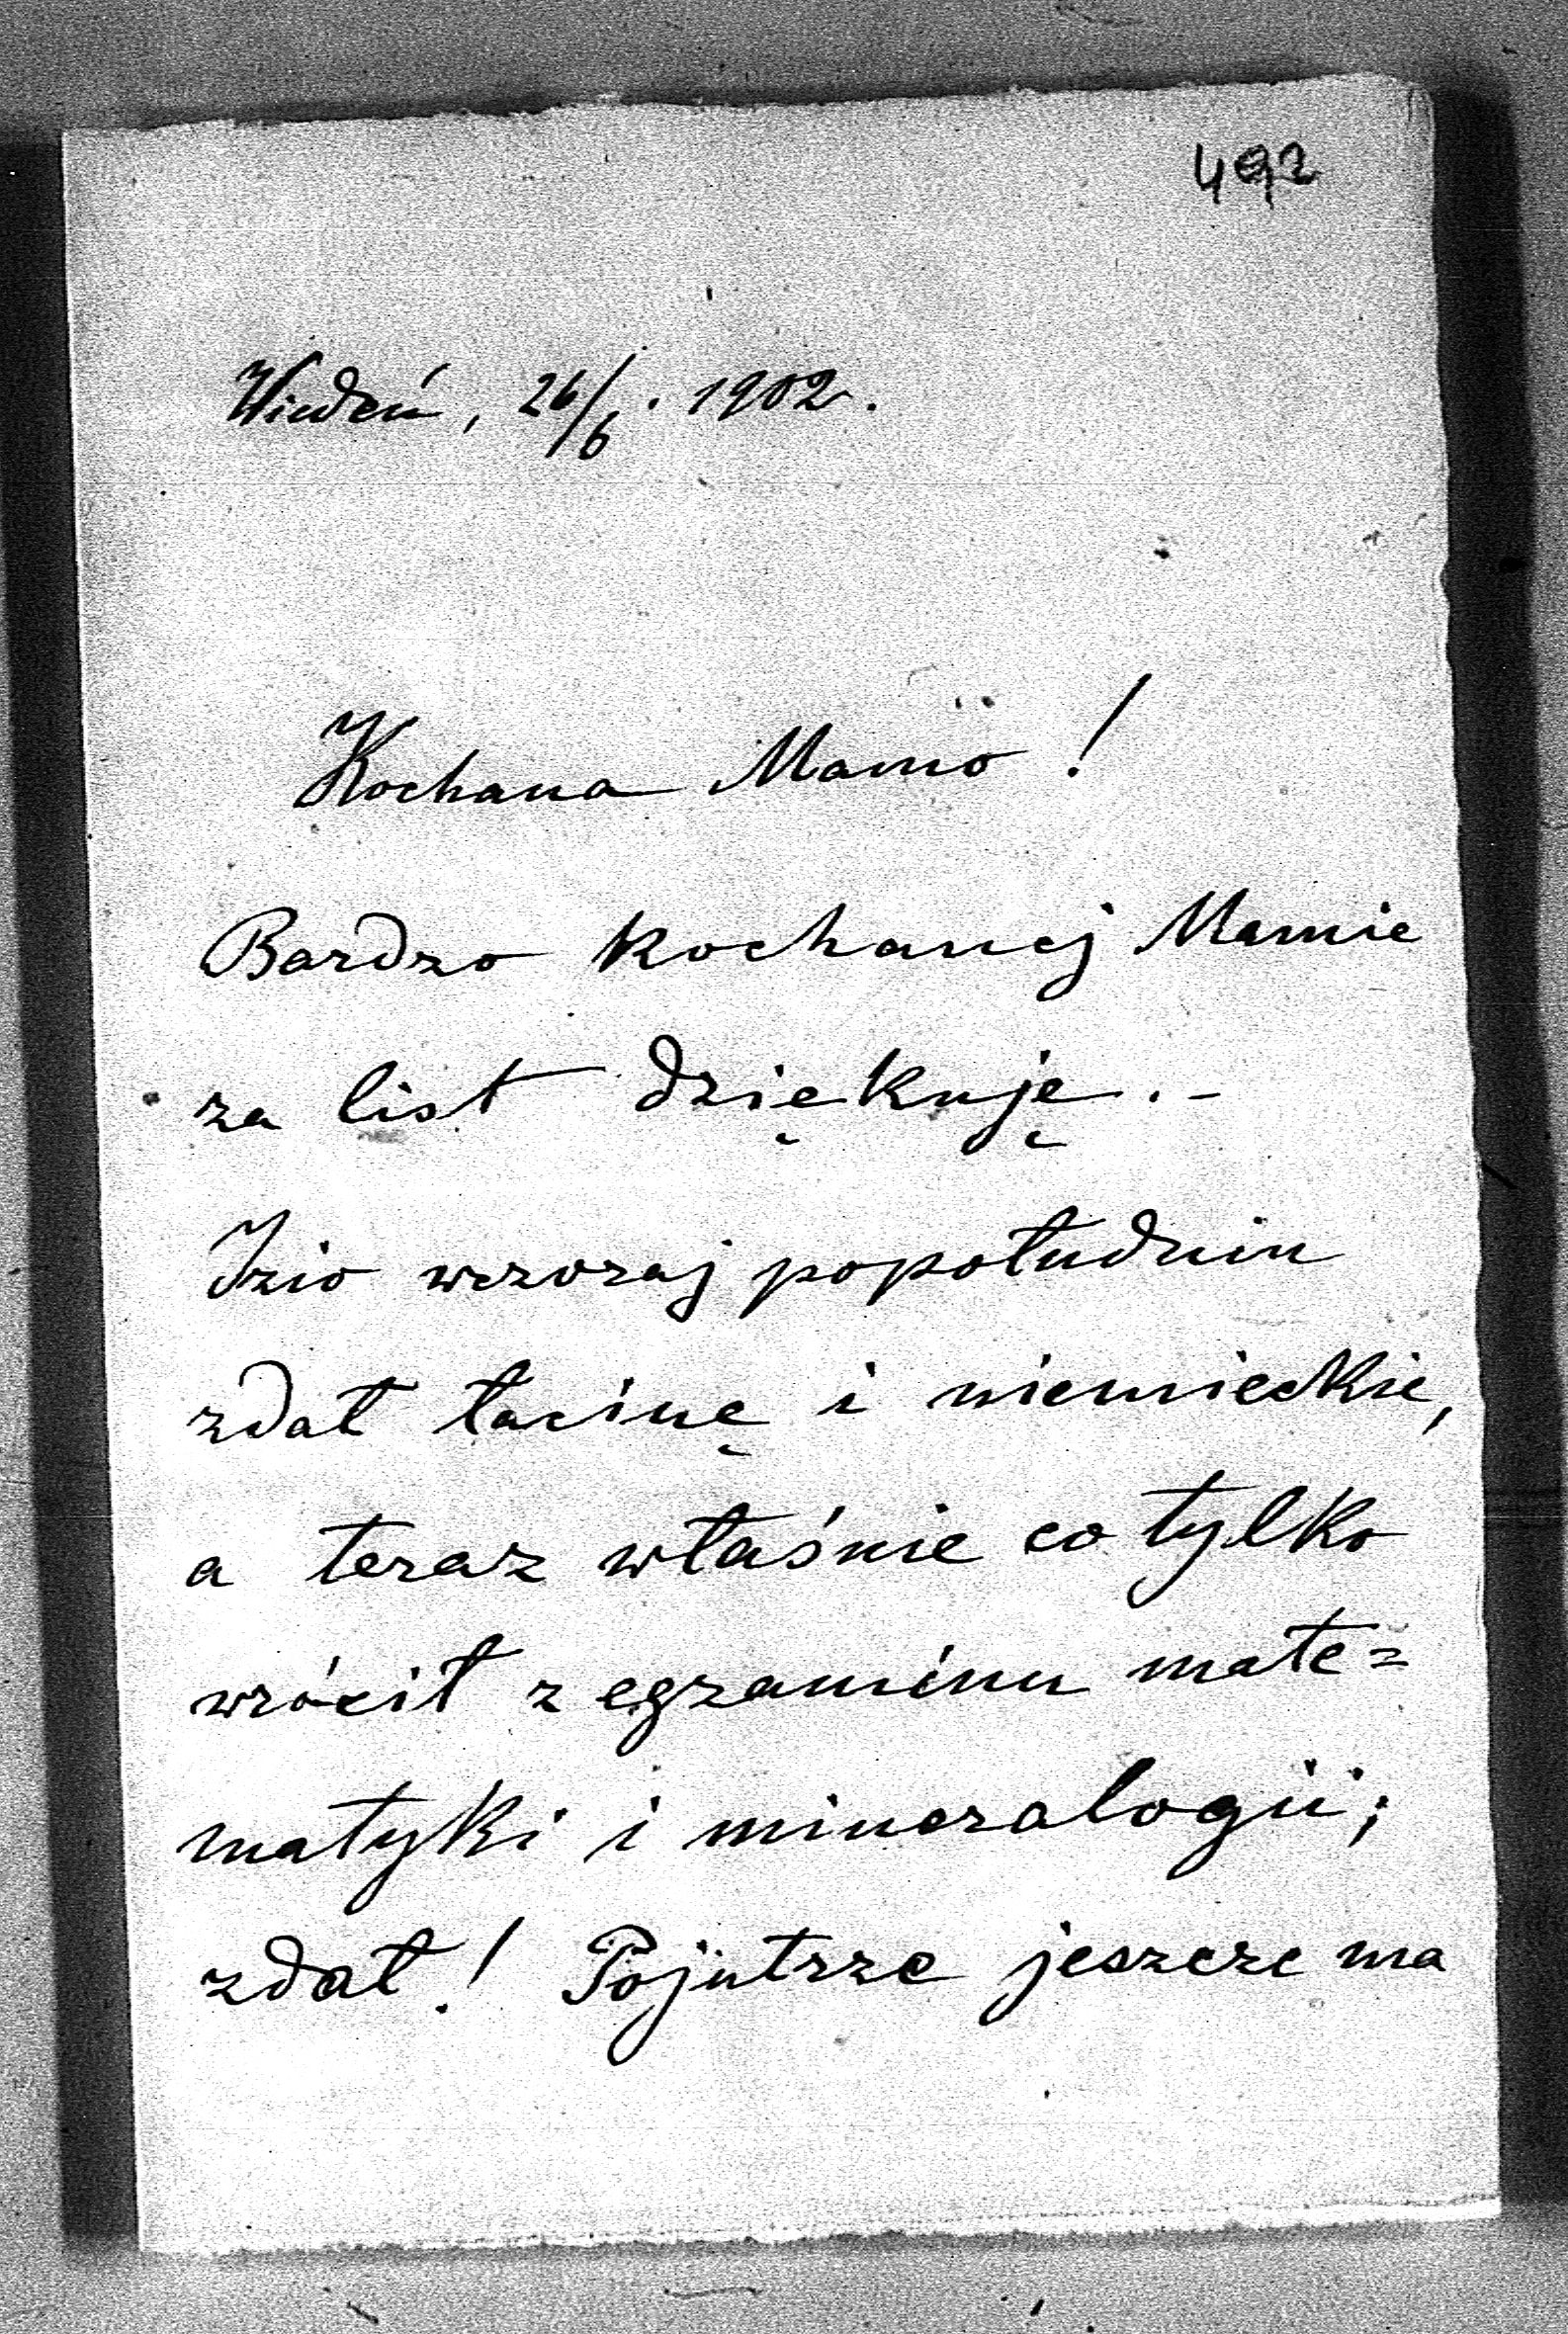 492
Wiedeń, 26/6. 1902.
Kochana Mamö!
Bardzo kochanej Mamie
za list dziękuję.-
Izio wczoraj popołudniu
zdał łacinę i niemieckie,
a teraz właśnie co tylko
wrócił z egzaminu mate=
matyki i mineralogii;
zdał! Pojutrze jeszcze ma